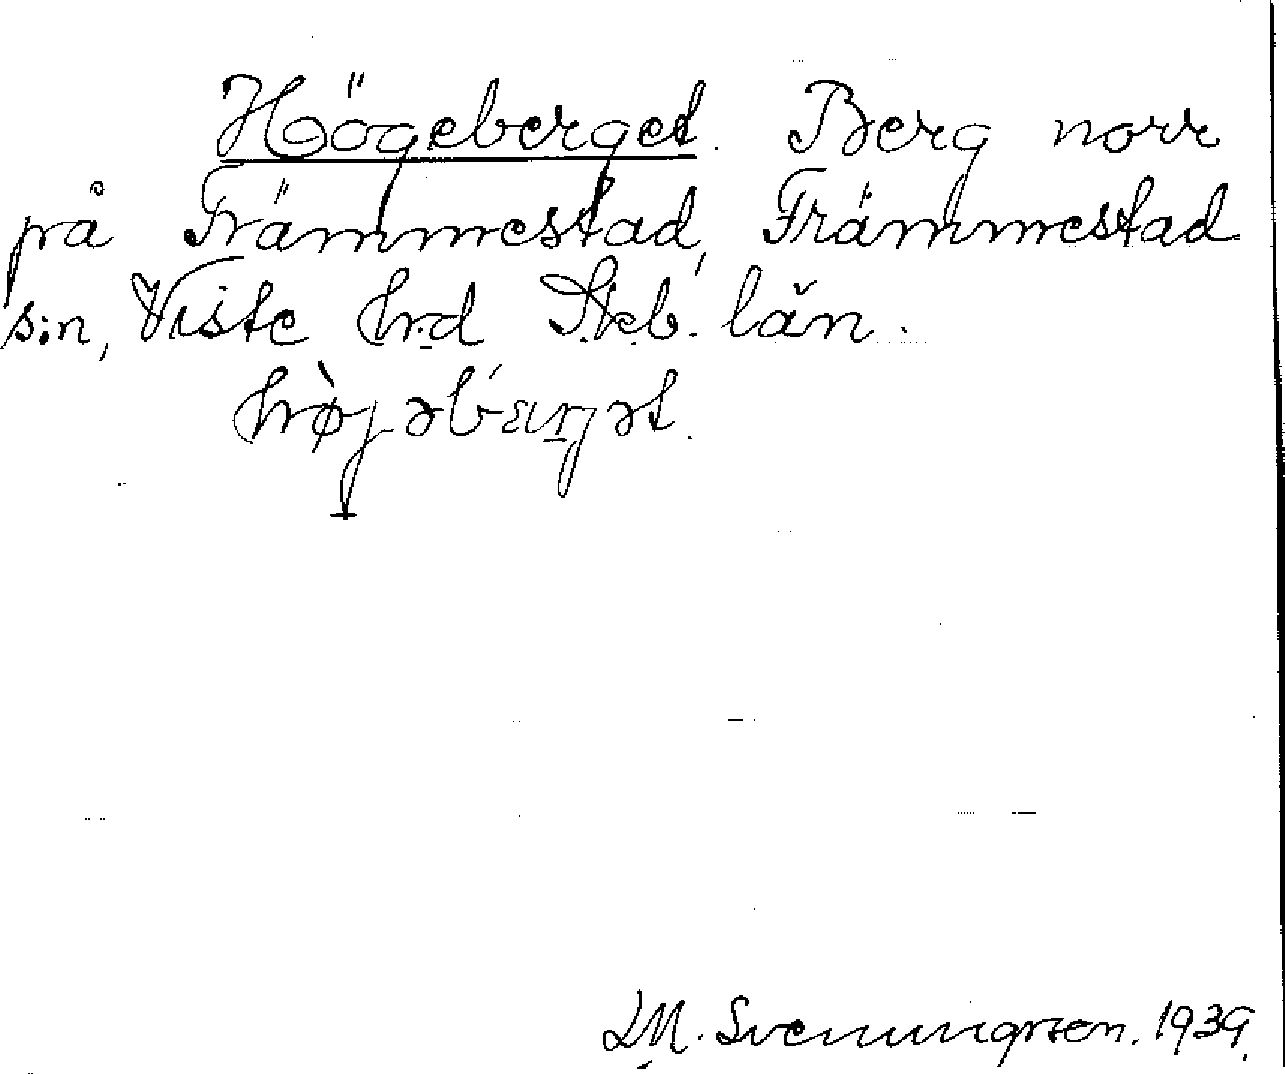 Högeberget. Berg norr
på Främmestad, Främmestad
s:n, Viste hrd Skb. län.
hø̀jəbærjət.
M. Svenungsson. 1939.